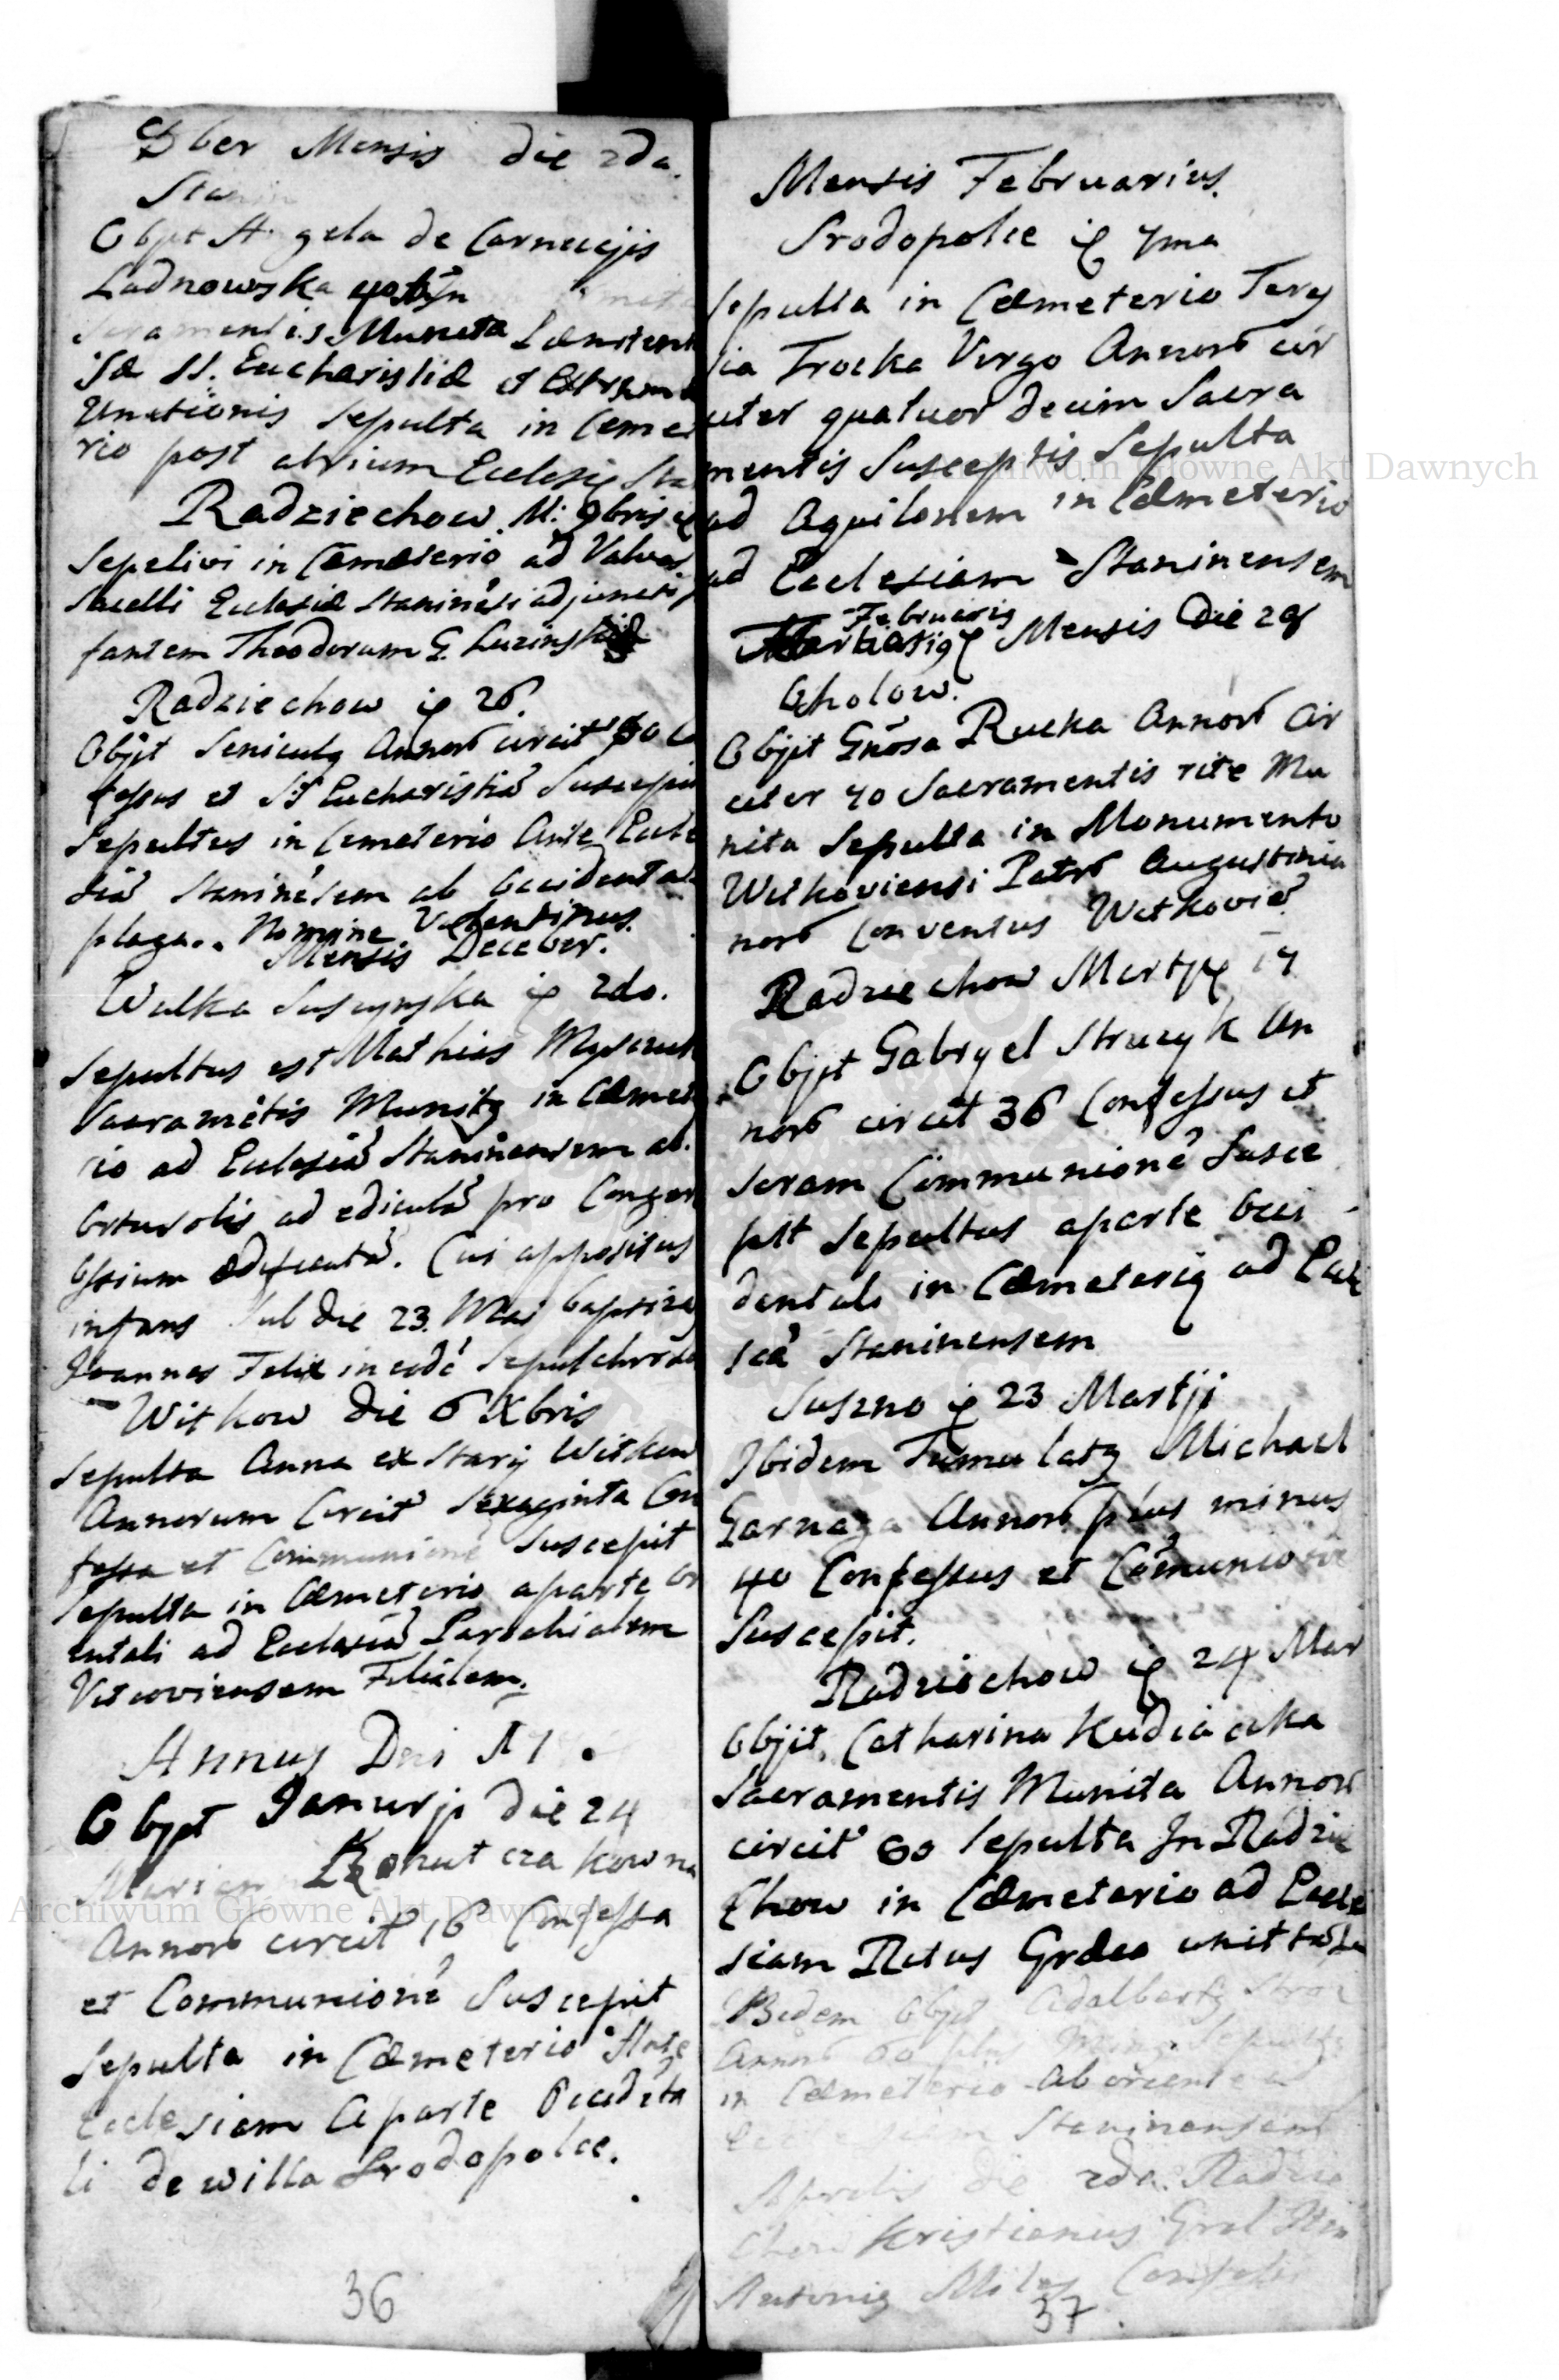 9ber Mensis die 2da.
Stanin
Obijt Angela de Carneccjis
Ladnowska
Sacramentis Munita Pænitent
iæ SS. Eucharistiæ et Extrem
Unctionis Sepulta in Cemet
rio post atrium Ecclesię Sta
Radziechow. M: 9bris
Sepelivi in Cæmeterio ad Valvas
Sacelli Ecclesiæ Staninẽsi adjuncti
fantem Theodorum G. Luzinski
Radziechow ię 26.
Objit Seniculg Annorũ circit 80 Co
fessus et SS Eucharistiã Suscepit
Sepultus in Cemeterio Ante Eccle
siã Staninẽsem ab Occidentali
plaga. Nomine Valentinus.
Mensis Decẽber.
Wulka Suszynska ię 2do.
Sepultus est Mathias
Sacramẽtis Munitg in Cæmet
rio ad Ecclesiã Staninensem ab.
Ortu solis ad ediculã pro Conger
Ossium ædificatã. Cui appositus
infans sub die 23. Maj baptiza
Joannes Felix in eodẽ Sepulchro
Witkow die 6 Xbris
Sepulta Anna ex Stary Witkow
Annorum Circit Sexaginta Con
fessa et Communionẽ Suscepit
Sepulta in Cæmeterio a parte Or
entali ad Ecclesiã Parochialem
Vitcoviensem Filialem.
Annus Dni
Obijt Januarji die 24
Marian
Annorũ circit 16 Confessa
et Communionẽ Suscepit
Sepulta in Cæmeterio Ante
Ecclesiam A parte Occidẽta
li de willa Srodopolce.
36
Mensis Februarius.
Srodopolce ię 7ma
Sepulta in Cæmeterio Tere
sia Trocka Virgo Annorũ cir
citer quatuor decim Sacra
mentis Susceptis Sepulta
ad Aquilonem in Cæmeterio
ad Ecclesiam Staninensem
Februarig
Mensis Die 28
Oholow.
Objit Gnõsa Rucka Annorũ Cir
citer 70 Sacramentis rite Mu
nita Sepulta in Monumento
Witkoviensi Patrũ Augustinia
norũ Conventus Witkovie
Radziechow Martij ię 17
Objit Gabryel Strucyk An
norũ circit 36 Confessus et
Sacram Communionẽ Susce
pit Sepultus a parte Occi
dentali in Cæmeterig ad Eccle
siã Staninensem
Suszno ię 23 Martji
Ibidem Tumulatg Michael
Garnaga Annorũ plus minus
40 Confessus et Cõmunionẽ
Suscepit.
Radziechow ię 24 Mar
Objit Catharina
Sacramentis Munita Annorũ
circit 60 Sepulta In Radzie
Chow in Cæmeterio ad Eccle
siam Ritus Græco
Ibidem Objit Adalbertg
Annorũ 60 plus Ming Sepultg
in Cæmeterio ab oriente ad
Ecclesiam Staninensem
Aprilis die 2da. Radzie
Chow Kristianus
Antonig Miles Confessus
37.
Archiwum Główne Akt Dawnych
Archiwum Główne Akt Dawnych